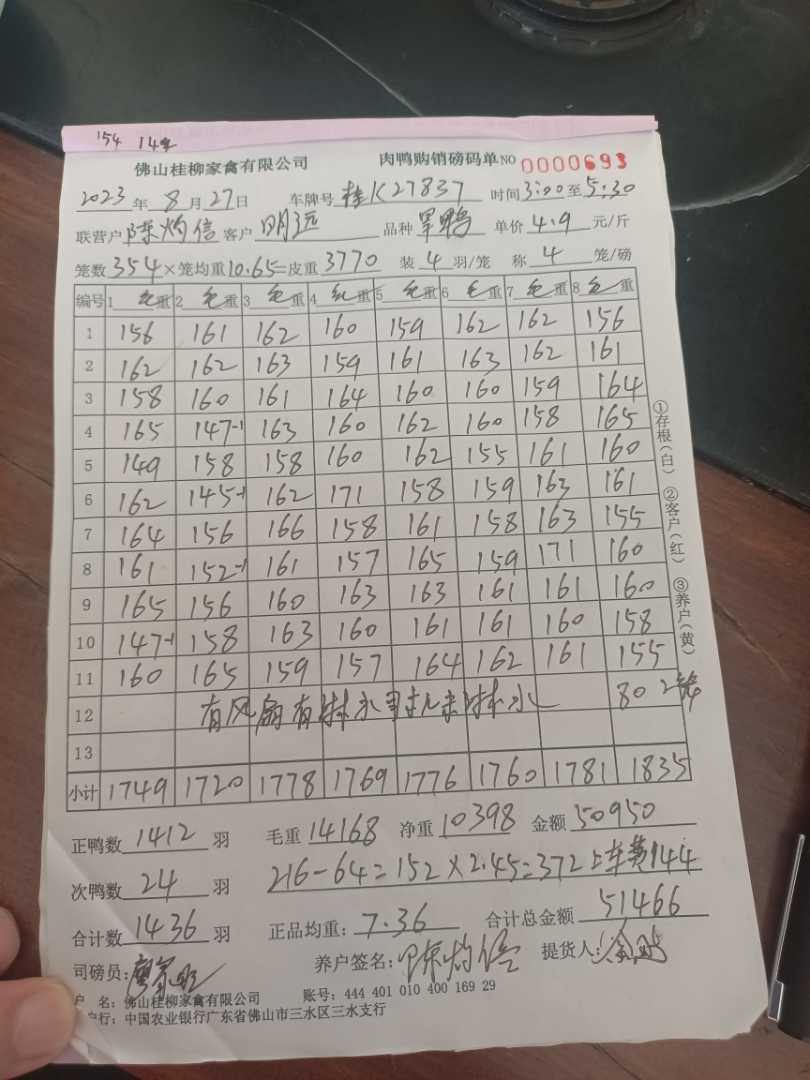 154 14年
佛山桂柳家禽有限公司 肉鸭购销磅码单 NO 0000693
2023年8月27日 车牌号 桂K27837 时间3:00至5:30
联营户 陈灼信 客户 明远 品种 旱鸭 单价 4.9 元/斤
笼数354×笼均重10.65=皮重 3770 装 4 羽/笼 称 4 笼/磅
编号 1 毛重 2 毛重 3 毛重 4 毛重 5 毛重 6 毛重 7 毛重 8 毛重
1 156 161 162 160 159 162 162 156
2 162 162 163 159 161 163 162 161
3 158 160 161 164 160 160 159 164
4 165 147-1 163 160 162 160 158 165
5 149 158 158 160 162 155 161 160
6 162 145-1 162 171 158 159 163 161
7 164 156 166 158 161 158 163 155
8 161 152-1 161 157 165 159 171 160
9 165 156 160 163 163 161 161 160
10 147-1 158 163 160 161 161 160 158
11 160 165 159 157 164 162 161 155
12 有风扇有淋水 淋水 80 2笼
13
小计 1749 1720 1778 1769 1776 1760 1781 1835
正鸭数 1412 羽 毛重 14168 净重 10398 金额 50950
次鸭数 24 羽 216-64=152×2.45=372 上车费144
合计数 1436 羽 正品均重: 7.36 合计总金额 51466
司磅员: 养户签名: 陈灼信 提货人:
户 名: 佛山桂柳家禽有限公司 账号: 444 401 010 400 169 29
户行: 中国农业银行广东省佛山市三水区三水支行
①存根(白) ②客户(红) ③养户(黄)